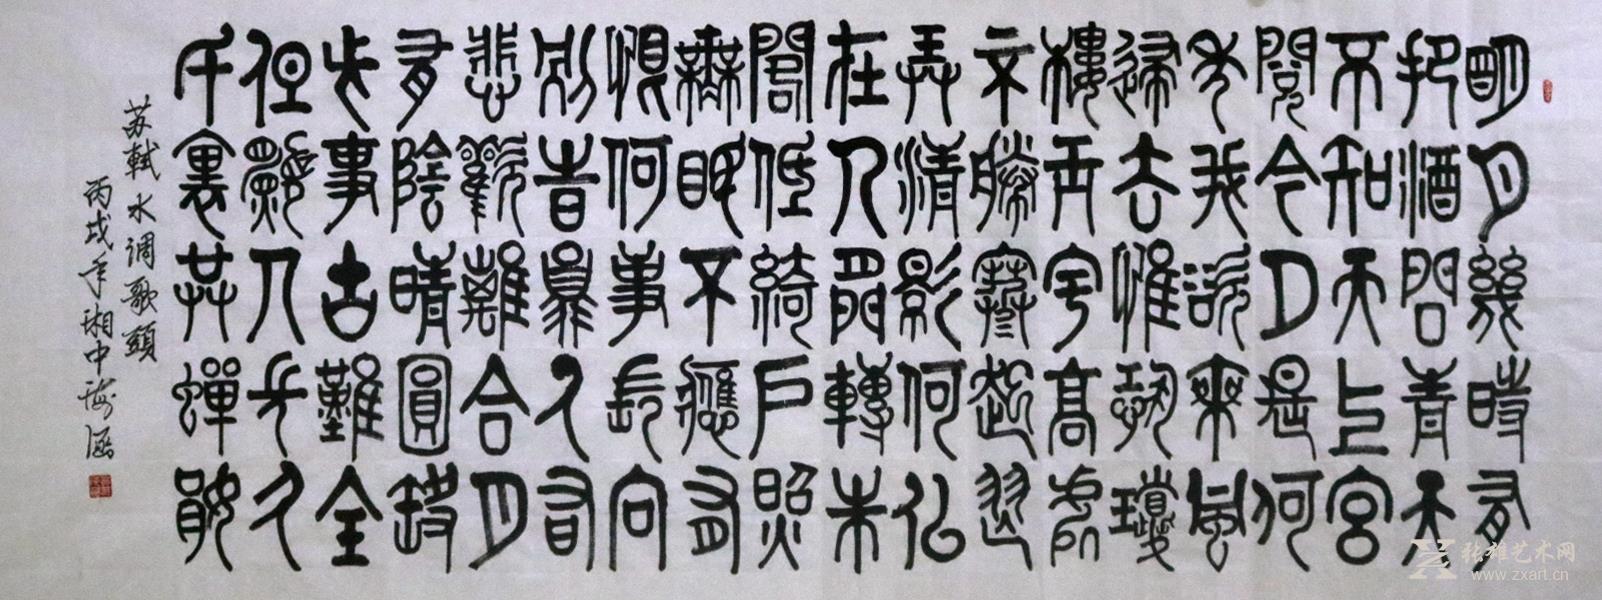 明月幾時有
把酒問青天
不知天上宮
闕今夕是何
年我欲乘風
歸去惟恐瓊
樓玉宇高處
不勝寒起舞
弄清影何似
在人間轉朱
閣低綺戶照
無眠不應有
恨何事長向
別時圓人有
悲歡離合月
有陰晴圓缺
此事古難全
但願人長久
千裏共嬋娟
苏軾水调歌頭
丙戌年湘中
张雄艺术网
www.zxart.cn